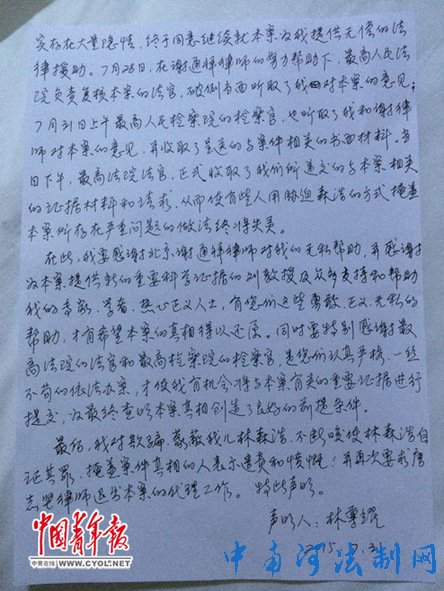 实存在大量隐情，终于同意继续就本案为我提供无偿的法
律援助。7月28日，在谢通祥律师的努力帮助下，最高人民法
院负责复核本案的法官，破例书面听取了我对本案的意见；
7月31日上午最高人民检察院的检察官，也听取了我和谢律
师对本案的意见，并收取了我的与案件相关的书面材料。当
日下午，最高法院法官，正式收取了我们所递交的与本案相关
的证据材料和请求，从而使有些人用胁迫森浩的方式掩盖
本案所存在严重问题的做法终将失灵。
在此，我要感谢北京谢通祥律师对我们的无私帮助，并感谢
为本案提供新的重要科学证据的刘教授及众多支持和帮助
我的专家、学者、热心正义人士，有您们这些勇敢、正义、无私的
帮助，才有希望本案的真相得以还原。同时要特别感谢最
高法院的法官和最高检察院的检察官，是您们认真严格、一丝
不苟的依法办案，才使我有机会将与本案有关的重要证据进行
提交，为最终查明本案真相创造了良好的前提条件。
最后，我对欺骗、蒙蔽我儿林森浩，不断唆使林森浩自
证其罪、掩盖案件真相的人表示遗责和愤慨！并再次要求唐
志坚律师退出本案的代理工作。特此声明。
声明人：林尊耀
15.7.31
中国青年报
中青在线 WWW.CYOL.NET
中南河法制网